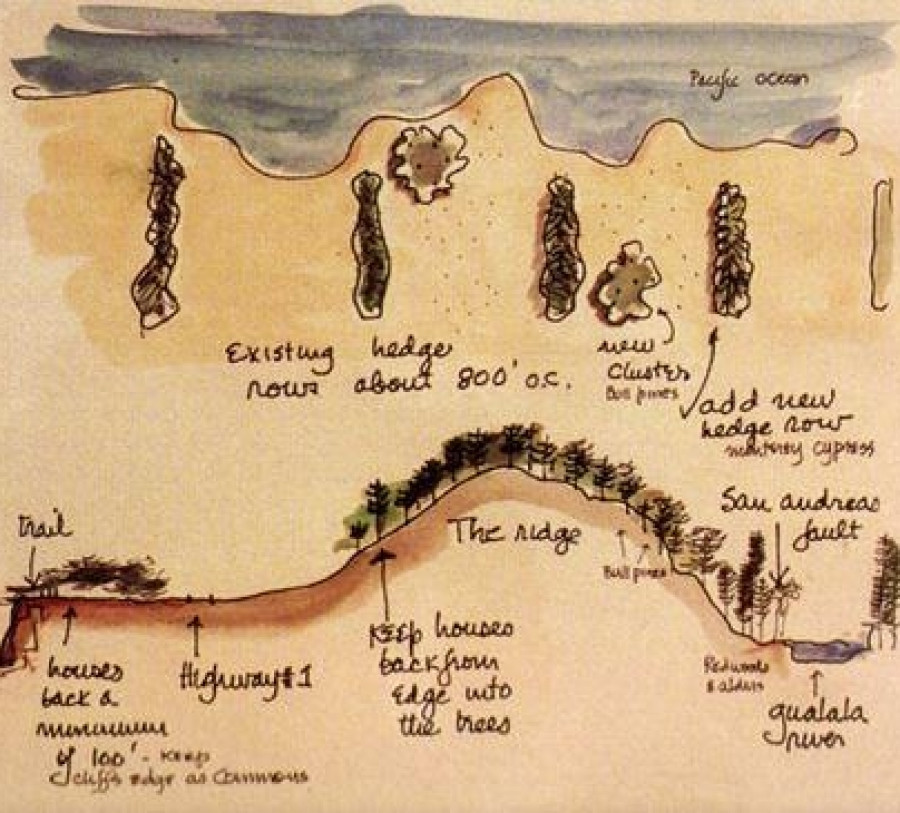 Pacific ocean
Existing hedge
rows about 800' o.c.
new
cluster
Bull pines
add new
hedge row
monterey cypress
trail
The ridge
San andreas
fault
Bull pines
houses
back a
minimum
of 100' - keep
cliffs edge as Commons
Highway #1
Keep houses
back from
Edge into
the trees
Redwoods
& alders
gualala
river